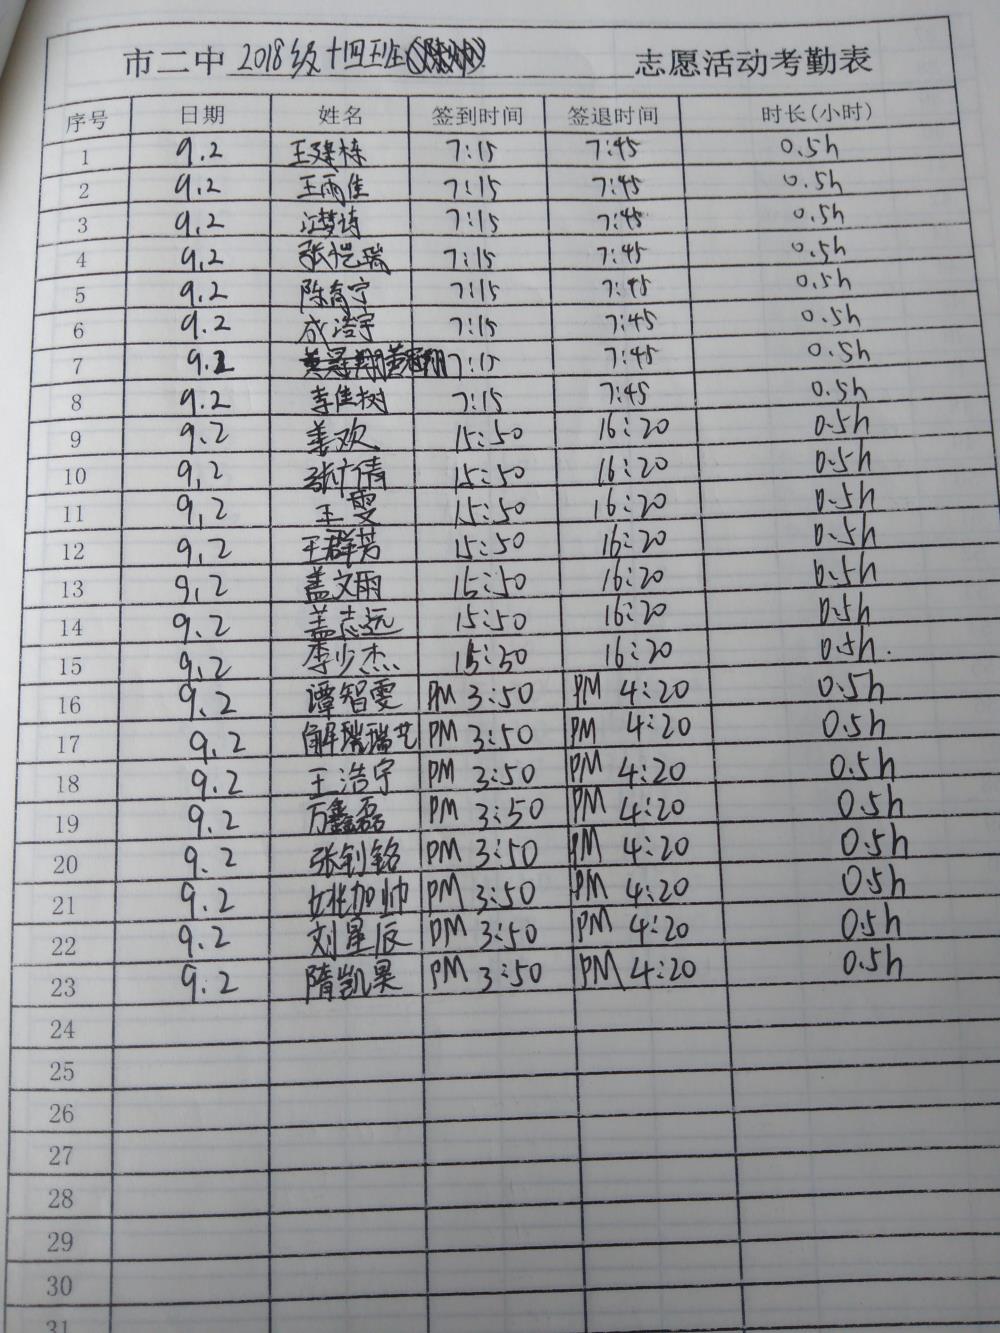 市二中 2018级十四班 志愿活动考勤表
序号 日期 姓名 签到时间 签退时间 时长(小时)
1 9.2 王建栋 7:15 7:45 0.5h
2 9.2 王雨佳 7:15 7:45 0.5h
3 9.2 江梦诗 7:15 7:45 0.5h
4 9.2 张恺瑞 7:15 7:45 0.5h
5 9.2 陈奇宁 7:15 7:45 0.5h
6 9.2 成浩宇 7:15 7:45 0.5h
7 9.2 7:15 7:45 0.5h
8 9.2 李佳树 7:15 7:45 0.5h
9 9.2 姜欢 15:50 16:20 0.5h
10 9.2 张倩 15:50 16:20 0.5h
11 9.2 王雯 15:50 16:20 0.5h
12 9.2 王群芳 15:50 16:20 0.5h
13 9.2 盖文雨 15:50 16:20 0.5h
14 9.2 盖志远 15:50 16:20 0.5h
15 9.2 李少杰 15:50 16:20 0.5h.
16 9.2 谭智雯 PM 3:50 PM 4:20 0.5h
17 9.2 解瑞瑞艺 PM 3:50 PM 4:20 0.5h
18 9.2 王浩宇 PM 3:50 PM 4:20 0.5h
19 9.2 万鑫磊 PM 3:50 PM 4:20 0.5h
20 9.2 张钊铭 PM 3:50 PM 4:20 0.5h
21 9.2 姚加帅 PM 3:50 PM 4:20 0.5h
22 9.2 刘星辰 PM 3:50 PM 4:20 0.5h
23 9.2 隋凯昊 PM 3:50 PM 4:20 0.5h
24
25
26
27
28
29
30
31